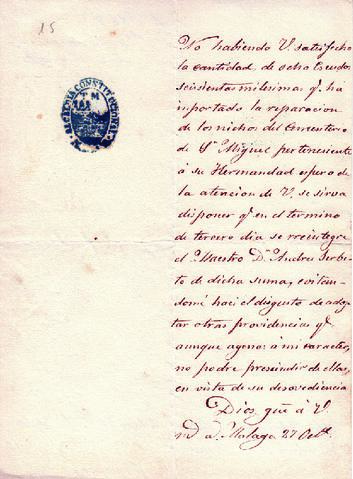 15
ALCALDIA CONSTITUCIONAL
No habiendo V. satisfecho
la cantidad de ocho Escudos
seiscientas milesimas q. ha
importado la reparacion
de los nichos del Cementerio
de Sn Miguel perteneciente
á su Hermandad espero de
la atencion de V. se sirva
disponer q. en el termino
de tercero dia se reintegre
el Maestro Dn Andres
to de dicha suma, evitan-
dome haci el disgusto de adop-
tar otras providencias q.
aunque ageno á mi caracter,
no podre prescindir de ellas,
en vista de su desovediencia
Dios gue á V.
m a. Malaga 27 Octe.